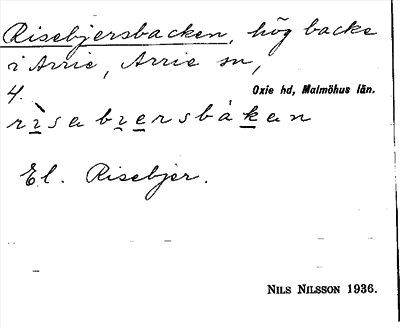 Risebjersbacken, hög backe
i Arrie, Arrie sn,
Oxie hd, Malmöhus län.
4.
El. Risebjer.
NILS NILSSON 1936.